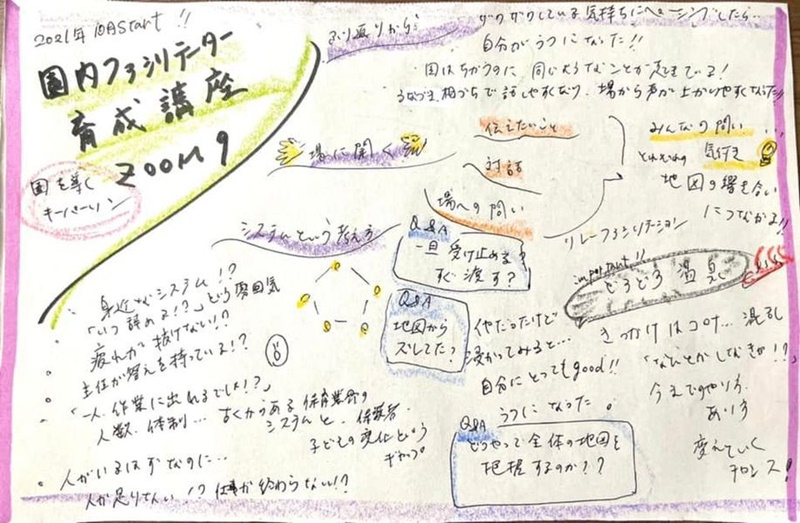 2021年10月Start!!
園内ファシリテーター
育成講座
ZOOM9
園を導く
キーパーソン
ふり返りから
ザワザワしている気持ちにペーシングしたら、
自分がうつになった!!
園はちがうのに、同じようなことが起きている!
うなづき、相づちで話しやすくなり、場から声が上がりやすくなった!!
場に開く
伝えたいこと
対話
場への問い
みんなの問い...
とそれぞれの気付き
地図の響き合い
につながる!!
リレーファシリテーション
システムという考え方
Q&A
一旦受け止める?
すぐ渡す?
Q&A
地図から
ズレてた?
important!!
どろどろ温泉
イヤだったけど
浸かってみると...
自分にとってもgood!!
うつになった。
きっかけはコロナ...混乱
「なんとかしなきゃ!?」
今までのやり方、
あり方
変えていく
チャンス!
Q&A
どうやって全体の地図を
把握するのか??
・身近なシステム!?
「いつ辞める!?」という雰囲気
・疲れが抜けない!?
・主任が答えを持っている!?
・「一人、作業に出れるでしょ!?」
人数、体制...古くからある保育業界の
システムと、保護者、
子どもの変化という
ギャップ
・人がいるはずなのに...
人が足りない!?仕事が終わらない!?